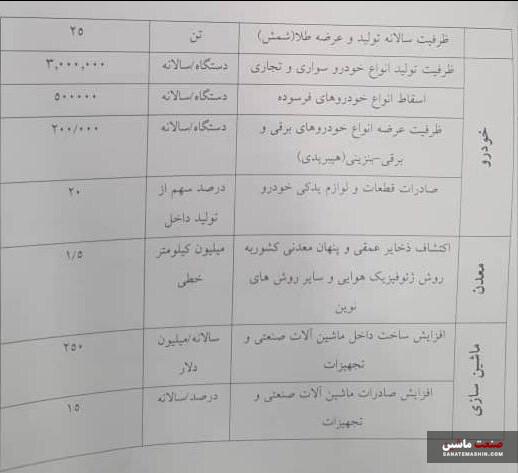 ظرفیت سالانه تولید و عرضه طلا(شمش) تن ۲۵
خودرو
ظرفیت تولید انواع خودرو سواری و تجاری دستگاه/سالانه ۳,۰۰۰,۰۰۰
اسقاط انواع خودروهای فرسوده دستگاه/سالانه ۵۰۰۰۰۰
ظرفیت عرضه انواع خودروهای برقی و دستگاه/سالانه ۲۰۰/۰۰۰
برقی-بنزینی(هیبریدی)
صادرات قطعات و لوازم یدکی خودرو درصد سهم از ۲۰
تولید داخل
معدن
اکتشاف ذخایر عمقی و پنهان معدنی کشوربه میلیون کیلومتر ۱/۵
روش ژئوفیزیک هوایی و سایر روش های خطی
نوین
ماشین سازی
افزایش ساخت داخل ماشین آلات صنعتی و سالانه/میلیون ۲۵۰
تجهیزات دلار
افزایش صادرات ماشین آلات صنعتی و درصد/سالانه ۱۵
تجهیزات
صنعت ماشین
SANATEMASHIN.COM